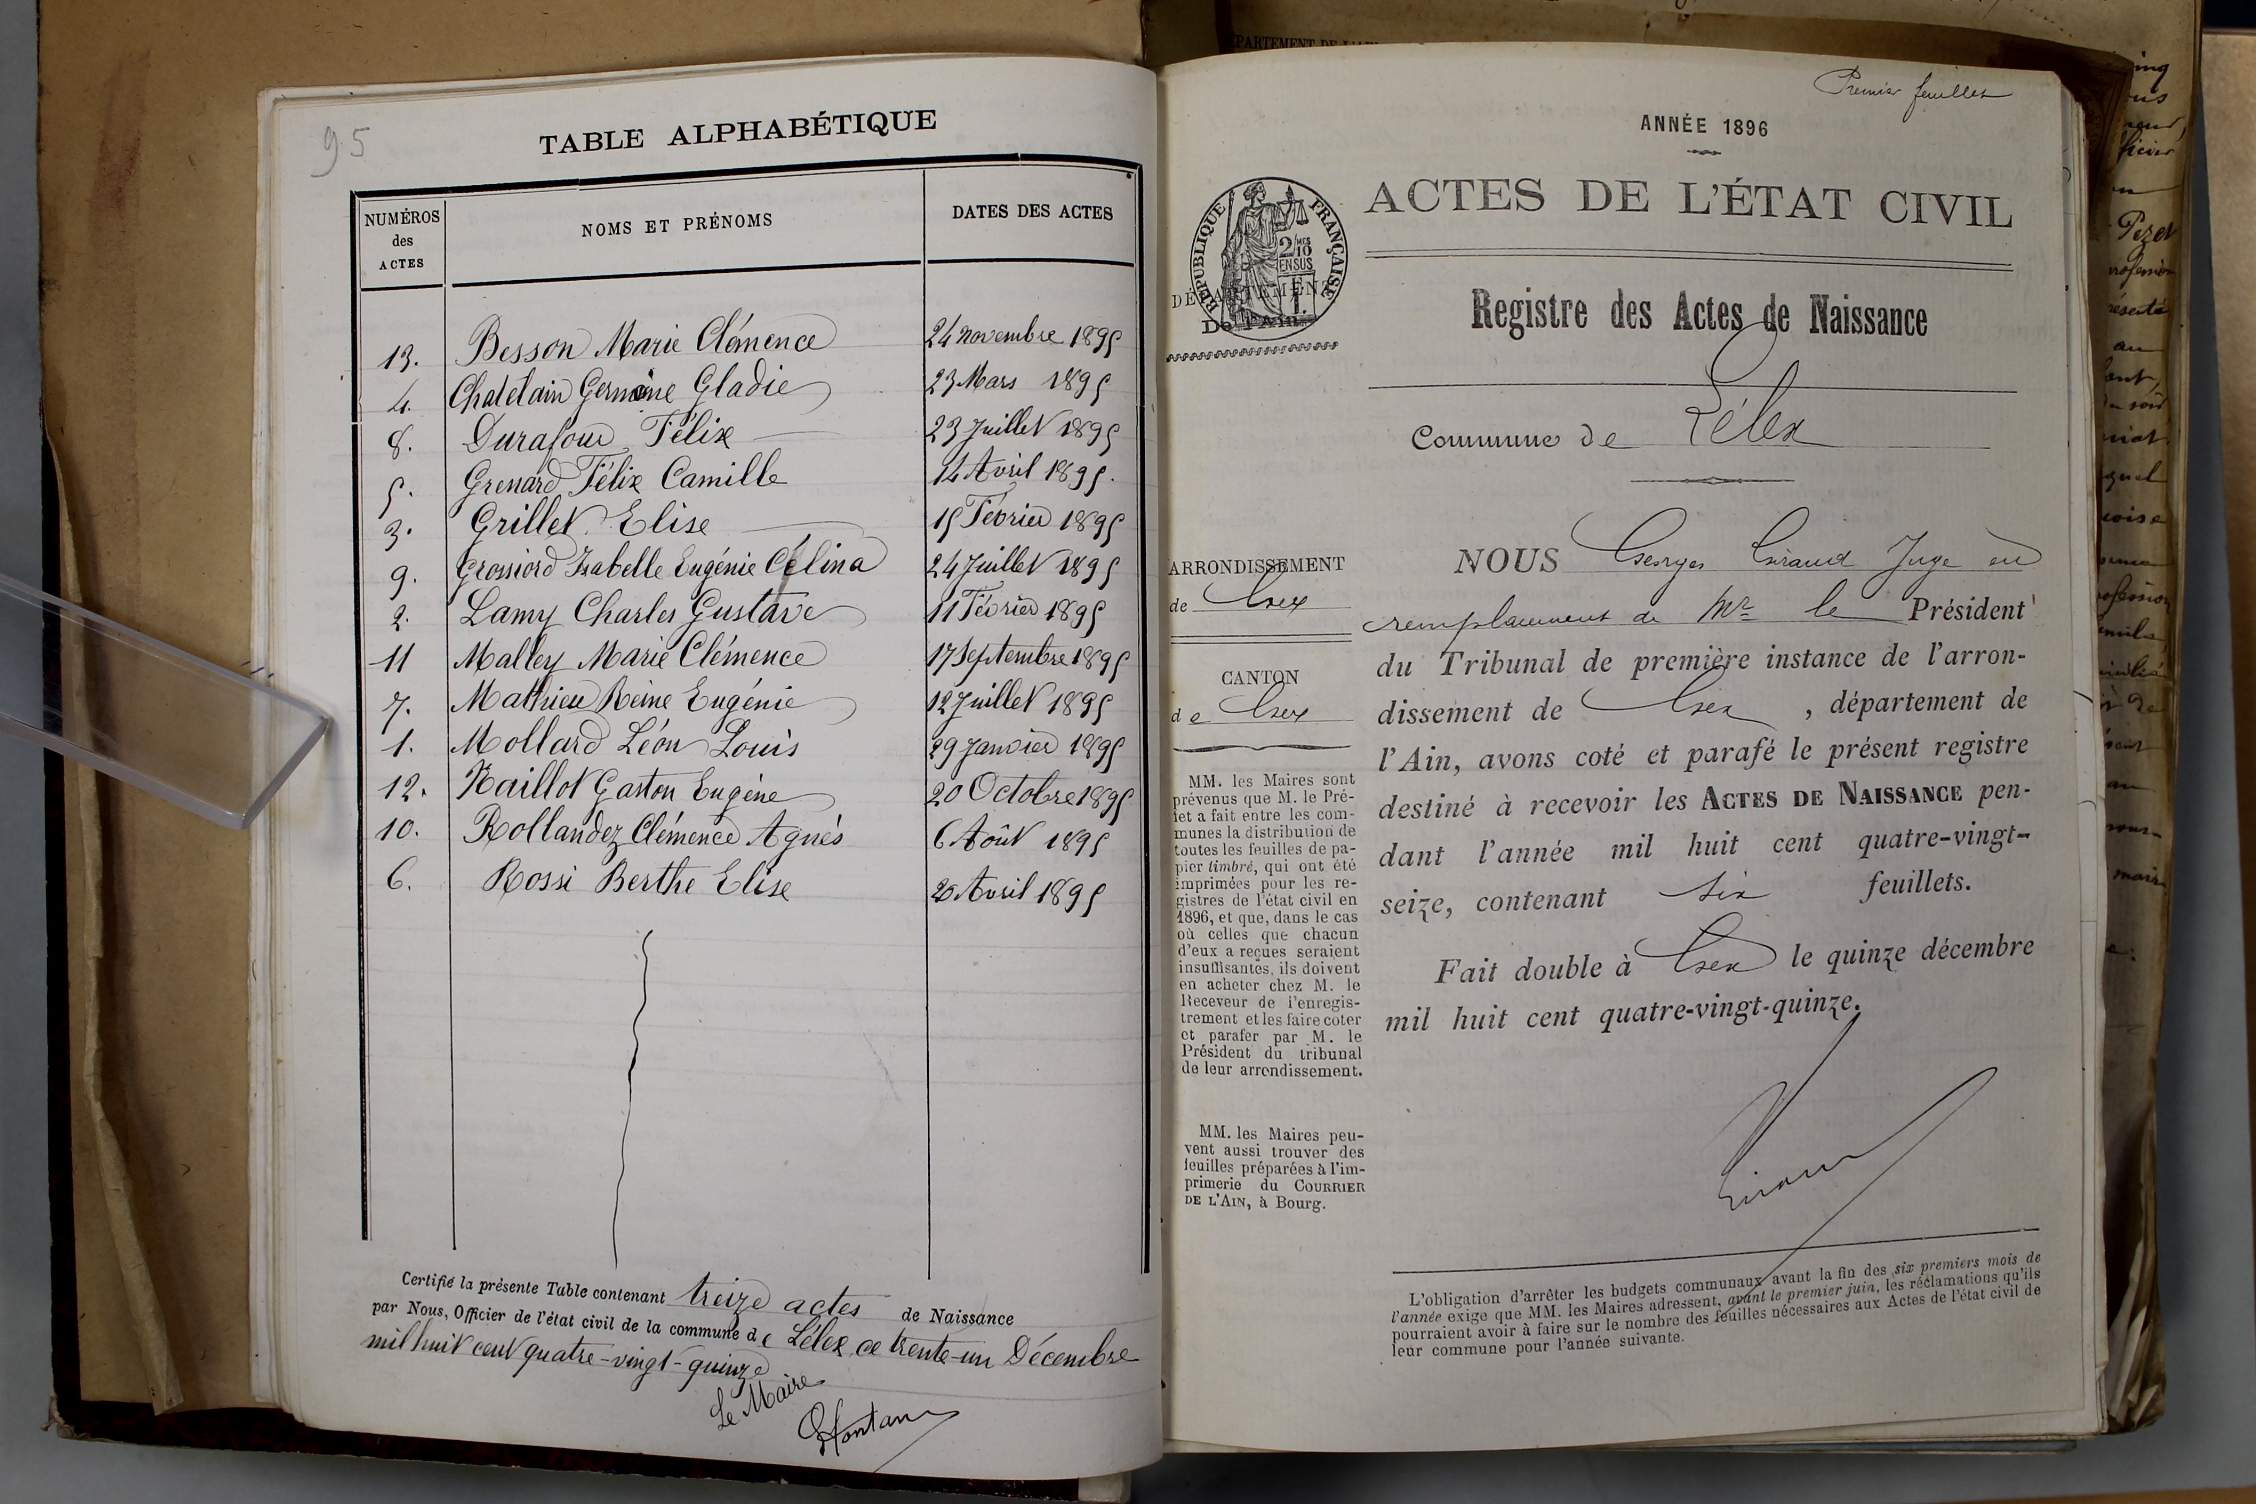 95
TABLE ALPHABÉTIQUE
NUMÉROS des ACTES NOMS ET PRÉNOMS DATES DES ACTES
13. Besson Marie Clémence 24 novembre 1895
4. Chatelain Germaine Gladie 23 Mars 1895
8. Durafour Félix 23 Juillet 1895
5. Grenard Félix Camille 14 Avril 1895.
3. Grillet Elise 15 Février 1895
9. Grossiord Isabelle Eugénie Célina 24 Juillet 1895
2. Lamy Charles Gustave 11 Février 1895
11 Malley Marie Clémence 17 Septembre 1895
7. Mathieu Reine Eugénie 12 Juillet 1895
1. Mollard Léon Louis 29 Janvier 1895
12. Naillot Gaston Eugène 20 Octobre 1895
10. Rollandez Clémence Agnès 6 Août 1895
6. Rossi Berthe Elise 20 Avril 1895
Certifié la présente Table contenant treize actes de Naissance
par Nous, Officier de l'état civil de la commune de Lélex ce trente-un Décembre
mil huit cent quatre-vingt-quinze
Le Maire
Premier feuillet
ANNÉE 1896
ACTES DE L'ÉTAT CIVIL
RÉPUBLIQUE FRANÇAISE
2/10
EN SUS
DÉPARTEMENT
De l'Ain
Registre des Actes de Naissance
Commune de Lélex
ARRONDISSEMENT
de Gex
CANTON
de Gex
MM. les Maires sont
prévenus que M. le Pré-
fet a fait entre les com-
munes la distribution de
toutes les feuilles de pa-
pier timbré, qui ont été
imprimées pour les re-
gistres de l'état civil en
1896, et que, dans le cas
où celles que chacun
d'eux a reçues seraient
insuffisantes, ils doivent
en acheter chez M. le
Receveur de l'enregis-
trement et les faire coter
et parafer par M. le
Président du tribunal
de leur arrondissement.
MM. les Maires peu-
vent aussi trouver des
feuilles préparées à l'im-
primerie du COURRIER
DE L'AIN, à Bourg.
NOUS Georges Giraud Juge en
remplacement de Mr le Président
du Tribunal de première instance de l'arron-
dissement de Gex, département de
l'Ain, avons coté et parafé le présent registre
destiné à recevoir les ACTES DE NAISSANCE pen-
dant l'année mil huit cent quatre-vingt-
seize, contenant six feuillets.
Fait double à Gex le quinze décembre
mil huit cent quatre-vingt-quinze.
Giraud
L'obligation d'arrêter les budgets communaux avant la fin des six premiers mois de
l'année exige que MM. les Maires adressent, avant le premier juin, les réclamations qu'ils
pourraient avoir à faire sur le nombre des feuilles nécessaires aux Actes de l'état civil de
leur commune pour l'année suivante.